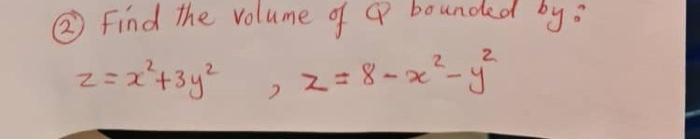 ② Find the volume of Q bounded by:
z = x²+3y² , z = 8-x²-y²